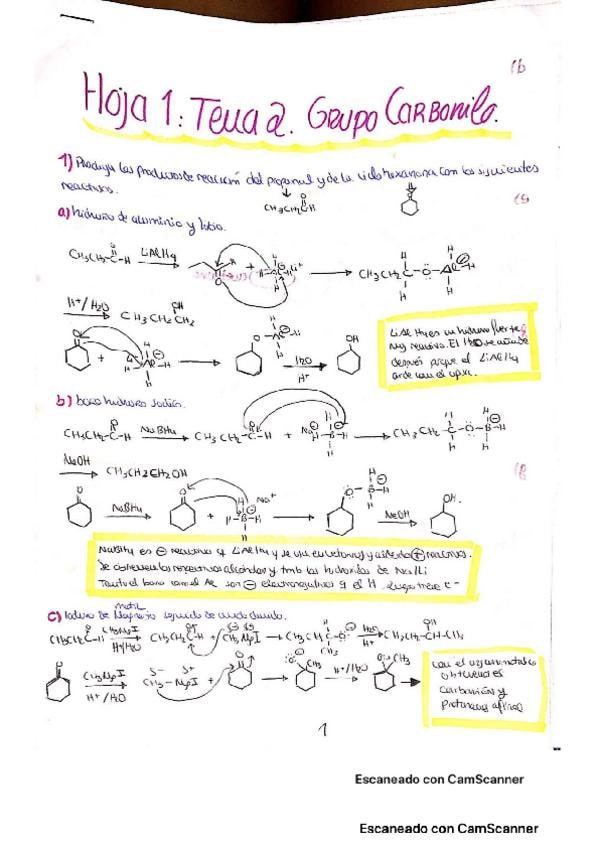 Hoja 1: Tema 2. Grupo Carbonilo.
1) Produzca los productos de reacción del propanal y de la ciclohexanona con los siguientes
reactivos.
CH3CH2C-H
O
a) hidruro de aluminio y litio.
CH3CH2C-H LiAlH4 + CH3CH2 C-O-Al-H
H+/H2O CH3CH2CH2 OH
LiAlH4 es un hidruro fuerte y
muy reactivo. El H2O se añade
después porque el LiAlH4
arde con el agua.
+ H2O H+ OH
b) boro hidruro sódico.
CH3CH2C-H NaBH4 CH3CH2-C-H + CH3CH2-C-O-B-H
MeOH CH3CH2CH2OH
NaBH4 + Na+ MeOH OH
NaBH4 es ⊖ reactivo q LiAlH4 y se usa en cetonas y aldehídos ⊕ reactivos.
Se obtienen los respectivos alcoholes y tmb los hidróxidos de Na/Li
Tanto el boro como el Al son ⊖ electronegativos q el H luego trae e-
c) Ioduro de metil Magnesio seguido de ácido diluido.
CH3CH2C-H CH3MgI H+/H2O CH3CH2C-H + CH3MgI CH3CH2-C-O H2O H+ CH3CH2-CH-CH3
CH3MgI H+/H2O CH3-MgI + H+/H2O CH3
con el organometálico
obtienes
carbonión y
protonas al final
1
Escaneado con CamScanner
Escaneado con CamScanner